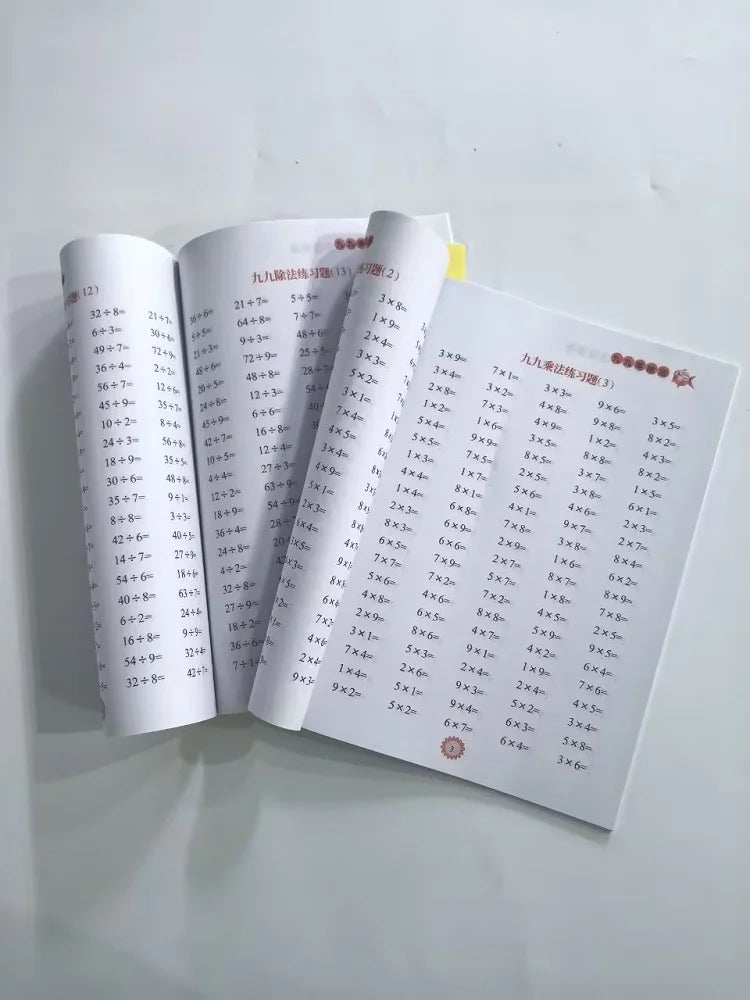 题(12)
32÷8= 21÷7=
6÷3= 30÷6=
49÷7= 72÷9=
36÷4= 2÷2=
56÷7= 12÷6=
45÷9= 35÷7=
10÷2= 8÷4=
24÷3= 56÷8=
18÷9= 35÷5=
30÷6= 48÷8=
35÷7= 9÷1=
8÷8= 3÷3=
42÷6= 40÷5=
14÷7= 27÷9=
54÷6= 18÷6=
40÷8= 63÷7=
6÷2= 24÷4=
16÷8= 9÷9=
54÷9= 32÷4=
32÷8= 42÷7=
九九除法练习题(13)
36÷6= 21÷7= 5÷5=
5÷5= 64÷8= 7÷7=
21÷3= 9÷3= 48÷6=
48÷6= 72÷9= 25÷5=
20÷5= 48÷8= 28÷7=
24÷8= 12÷3=
45÷9= 6÷6=
42÷7= 16÷8=
10÷5= 12÷4=
4÷4= 27÷3=
12÷2= 63÷9=
18÷9= 54÷9=
36÷4=
24÷8=
4÷2=
32÷8=
27÷9=
18÷2=
36÷6=
7÷1=
习题(2)
3×8=
1×9=
2×4=
3×3=
5×2=
3×1=
7×4=
4×5=
3×4=
4×9=
5×1=
2×3=
九九乘法练习题(3)
3×9= 7×1= 3×3= 9×6= 3×5=
3×4= 3×2= 4×8= 9×8= 8×2=
2×8= 7×3= 4×9= 1×2= 4×3=
1×2= 1×6= 3×5= 8×8= 8×2=
5×4= 9×9= 8×5= 3×7= 1×5=
5×5= 7×5= 2×5= 3×8= 6×1=
1×3= 1×7= 5×6= 4×6= 2×3=
4×4= 8×1= 4×1= 9×7= 2×7=
1×4= 6×8= 7×8= 3×8= 8×4=
2×3= 6×9= 2×9= 1×6= 6×2=
8×3= 6×6= 2×7= 8×7= 8×9=
6×5= 7×9= 5×7= 1×8= 7×8=
7×7= 7×2= 7×2= 4×5= 2×5=
5×6= 4×6= 8×8= 5×9= 9×5=
4×8= 6×5= 4×7= 4×2= 6×4=
2×9= 8×6= 9×1= 1×9= 7×6=
3×1= 5×3= 2×4= 2×4= 4×5=
7×4= 2×6= 9×3= 5×2= 3×4=
1×4= 5×1= 9×4= 6×3= 5×8=
9×2= 5×2= 6×7= 6×4= 3×6=
3